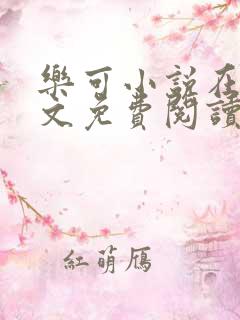 樂可小說在
文免費閱讀
紅萌鴈